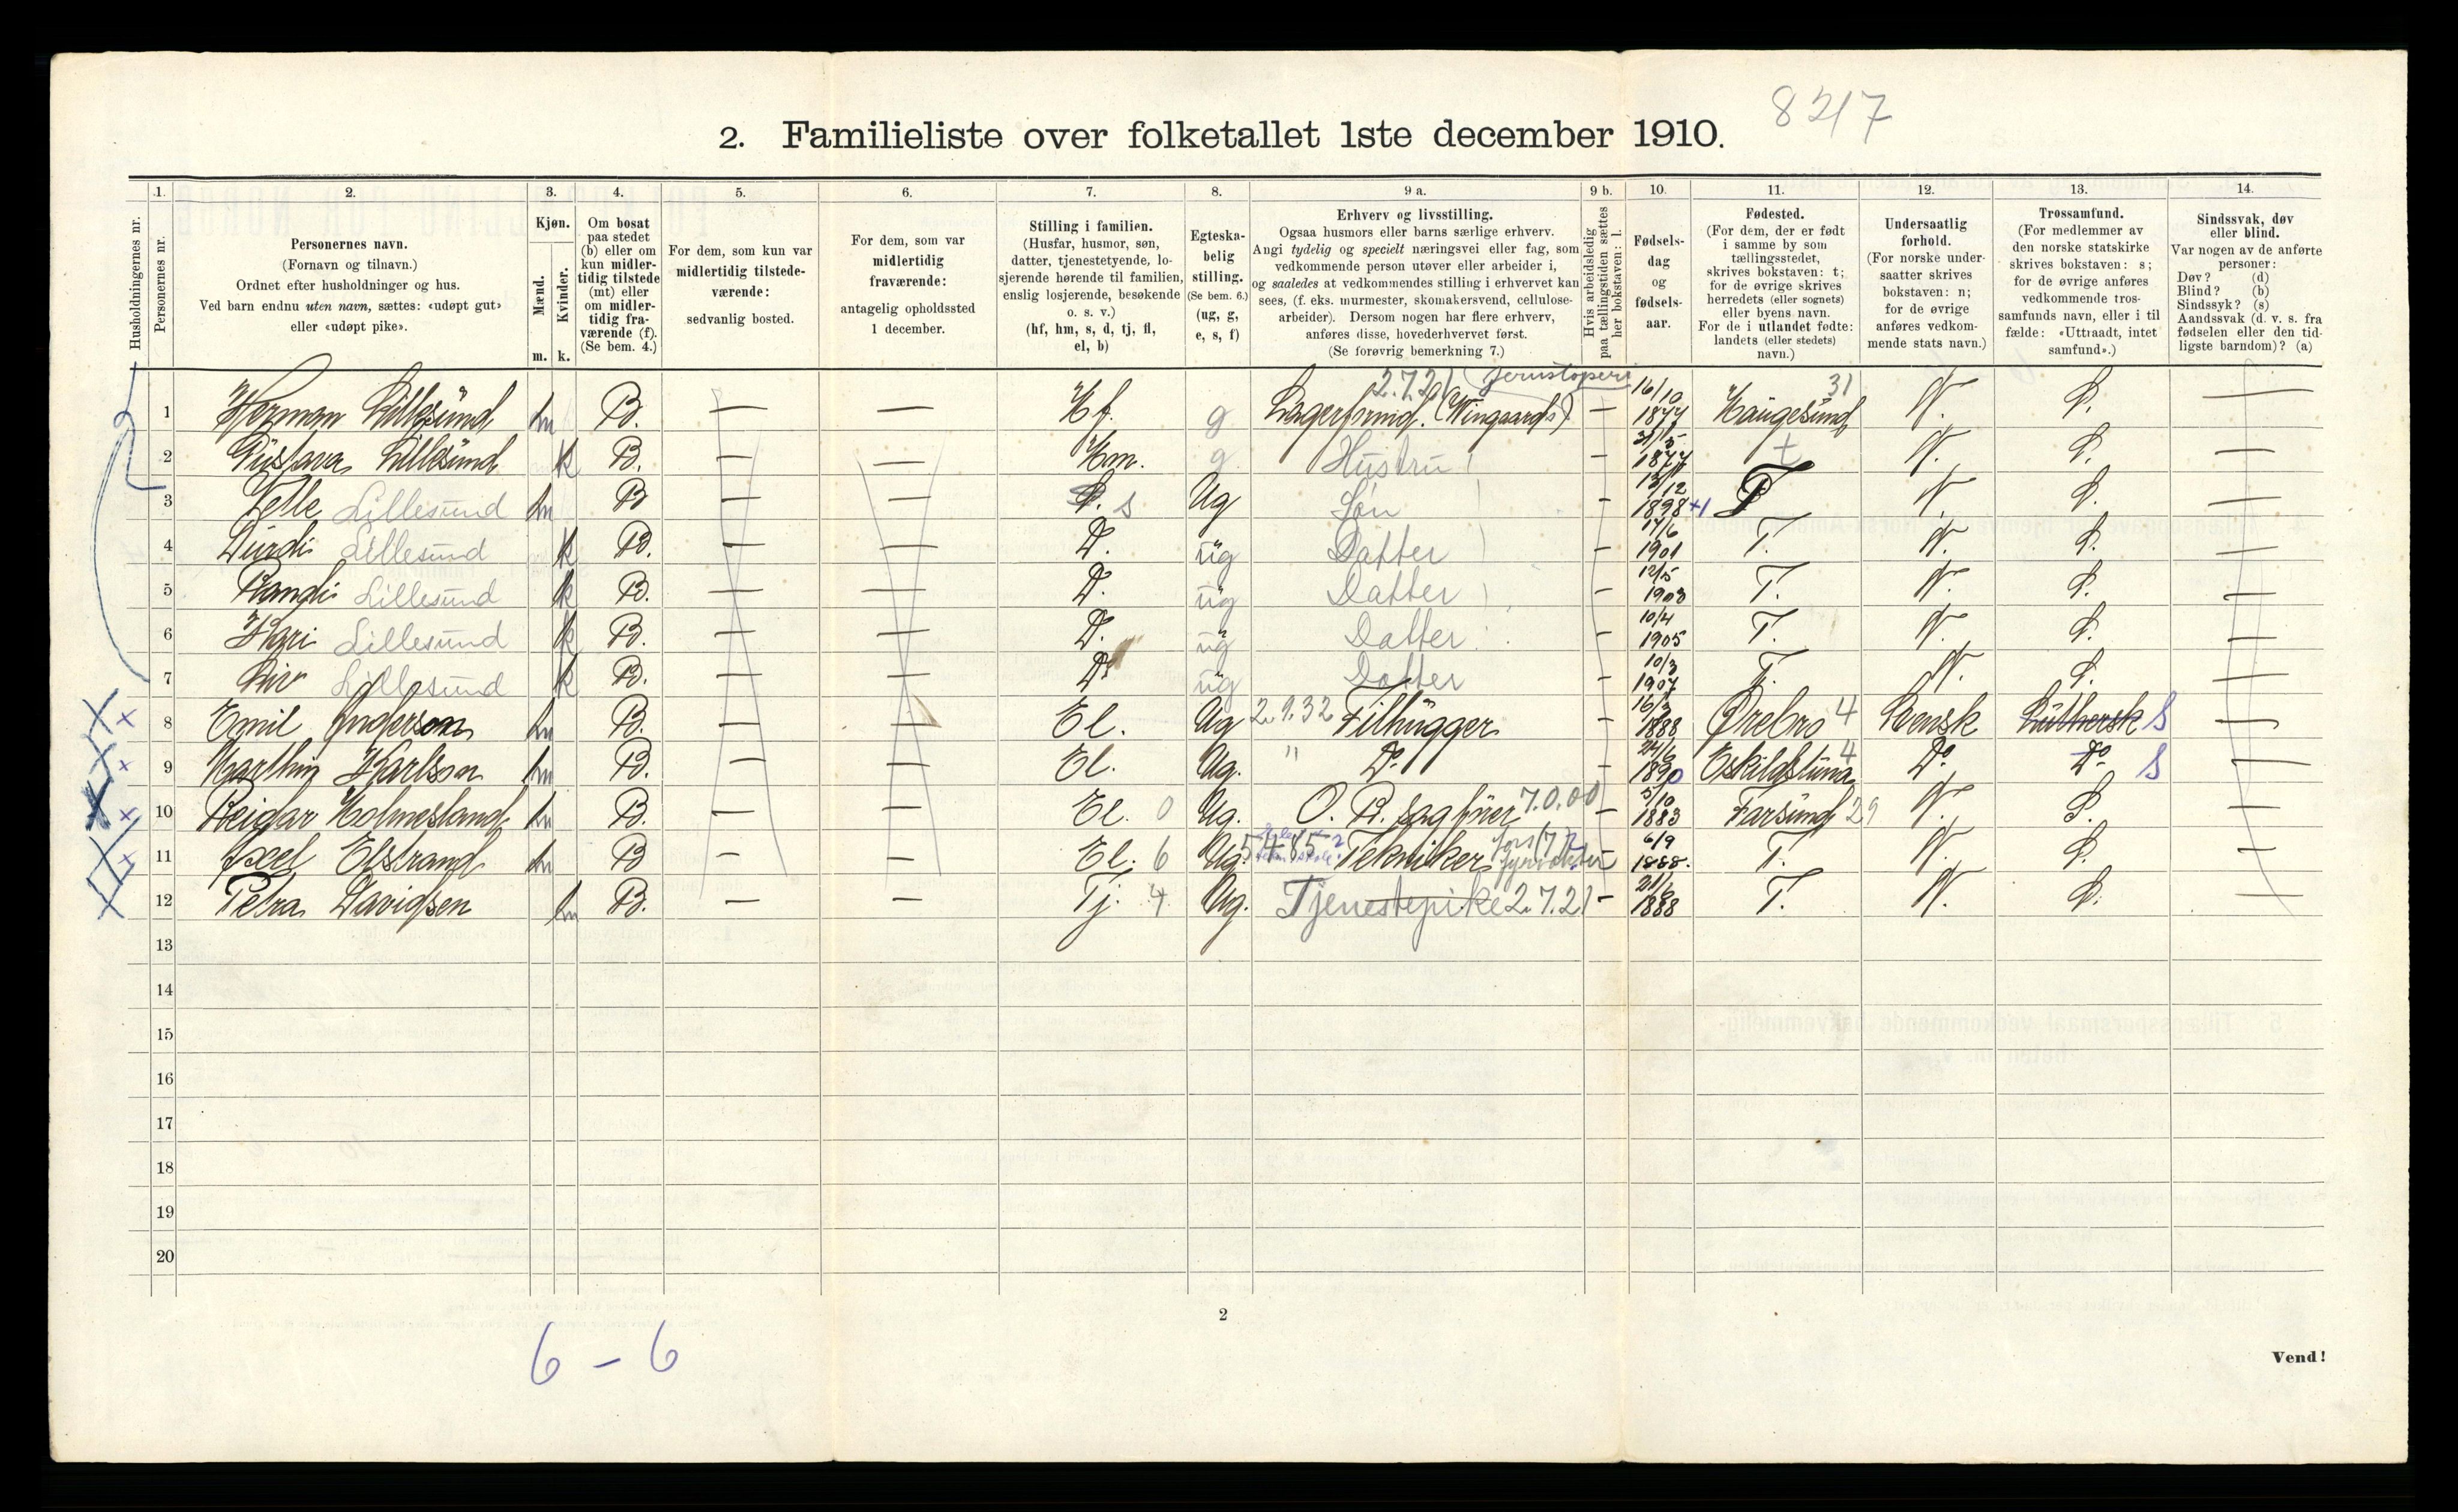 8217
2. Familieliste over folketallet 1ste december 1910.
1. 2. 3. 4. 5. 6. 7. 8. 9 a. 9 b. 10. 11. 12. 13. 14.
Husholdningernes nr.
Personernes nr.
Personernes navn.
(Fornavn og tilnavn.)
Ordnet efter husholdninger og hus.
Ved barn endnu uten navn, sættes: «udøpt gut»
eller «udøpt pike».
Kjøn.
Mænd.
Kvinder.
m. k.
Om bosat
paa stedet
(b) eller om
kun midler-
tidig tilstede
(mt) eller
om midler-
tidig fra-
værende (f).
(Se bem. 4.)
For dem, som kun var
midlertidig tilstede-
værende:
sedvanlig bosted.
For dem, som var
midlertidig
fraværende:
antagelig opholdssted
1 december.
Stilling i familien.
(Husfar, husmor, søn,
datter, tjenestetyende, lo-
sjerende hørende til familien,
enslig losjerende, besøkende
o. s. v.)
(hf, hm, s, d, tj, fl,
el, b)
Egteska-
belig
stilling.
(Se bem. 6.)
(ug, g,
e, s, f)
Erhverv og livsstilling.
Ogsaa husmors eller barns særlige erhverv.
Angi tydelig og specielt næringsvei eller fag, som
vedkommende person utøver eller arbeider i,
og saaledes at vedkommendes stilling i erhvervet kan
sees, (f. eks. murmester, skomakersvend, cellulose-
arbeider). Dersom nogen har flere erhverv,
anføres disse, hovederhvervet først.
(Se forøvrig bemerkning 7.)
Hvis arbeidsledig
paa tællingstiden sættes
her bokstaven: l.
Fødsels-
dag
og
fødsels-
aar.
Fødested.
(For dem, der er født
i samme by som
tællingsstedet,
skrives bokstaven: t;
for de øvrige skrives
herredets (eller sognets)
eller byens navn.
For de i utlandet fødte:
landets (eller stedets)
navn.)
Undersaatlig
forhold.
(For norske under-
saatter skrives
bokstaven: n;
for de øvrige
anføres vedkom-
mende stats navn.)
Trossamfund.
(For medlemmer av
den norske statskirke
skrives bokstaven: s;
for de øvrige anføres
vedkommende tros-
samfunds navn, eller i til
fælde: «Uttraadt, intet
samfund».)
Sindssvak, døv
eller blind.
Var nogen av de anførte
personer:
Døv? (d)
Blind? (b)
Sindssyk? (s)
Aandssvak (d. v. s. fra
fødselen eller den tid-
ligste barndom)? (a)
2.7.21 Jernstøperi 31
1 Herman Lillesund m B. — — Hf. g Lagerformd. (Wingaards) — 16/10 1877 Haugesund N. S. —
2 Gustava Lillesund k B. — — Hm. g Hustru — 1877 t N. S. —
3 Lillesund m B — — s Ug Søn — 13/12 1898 +1 T N. S. —
4 Lillesund k B. — — D. ug Datter — 14/6 1901 T. N. S. —
5 Randi Lillesund k B. — — D. ug Datter — 12/5 1903 T. N. S. —
6 Kari Lillesund k B. — — D. ug Datter — 10/4 1905 T. N. S. —
7 Liv Lillesund k B. — — D. ug Datter — 10/3 1907 T. N. S. —
8 Emil Anderson m B. — — El. Ug 2.9.32 Filhugger — 1888 Ørebro 4 Svensk Luthersk S —
9 Marthin Karlson m B. — — El. Ug. " Do — 24/6 1890 Eskildstuna 4 Do Do S —
10 Reidar Holmesland m B. — — El. 0 Ug. O. R. sagfører 7.0.00 — 5/10 1883 Farsund 29 N. S. —
11 Axel Elstrand m B — — El. 6 Ug. 5 485 Tekniker 6/9 1888. T. N. S. —
12 Petra Davidsen B. — — Tj. 4 Ug. Tjenestepike 2.7.21 — 21/6 1888 T. N. S. —
13
14
15
16
17
18
19
20
2
6 – 6
Vend!